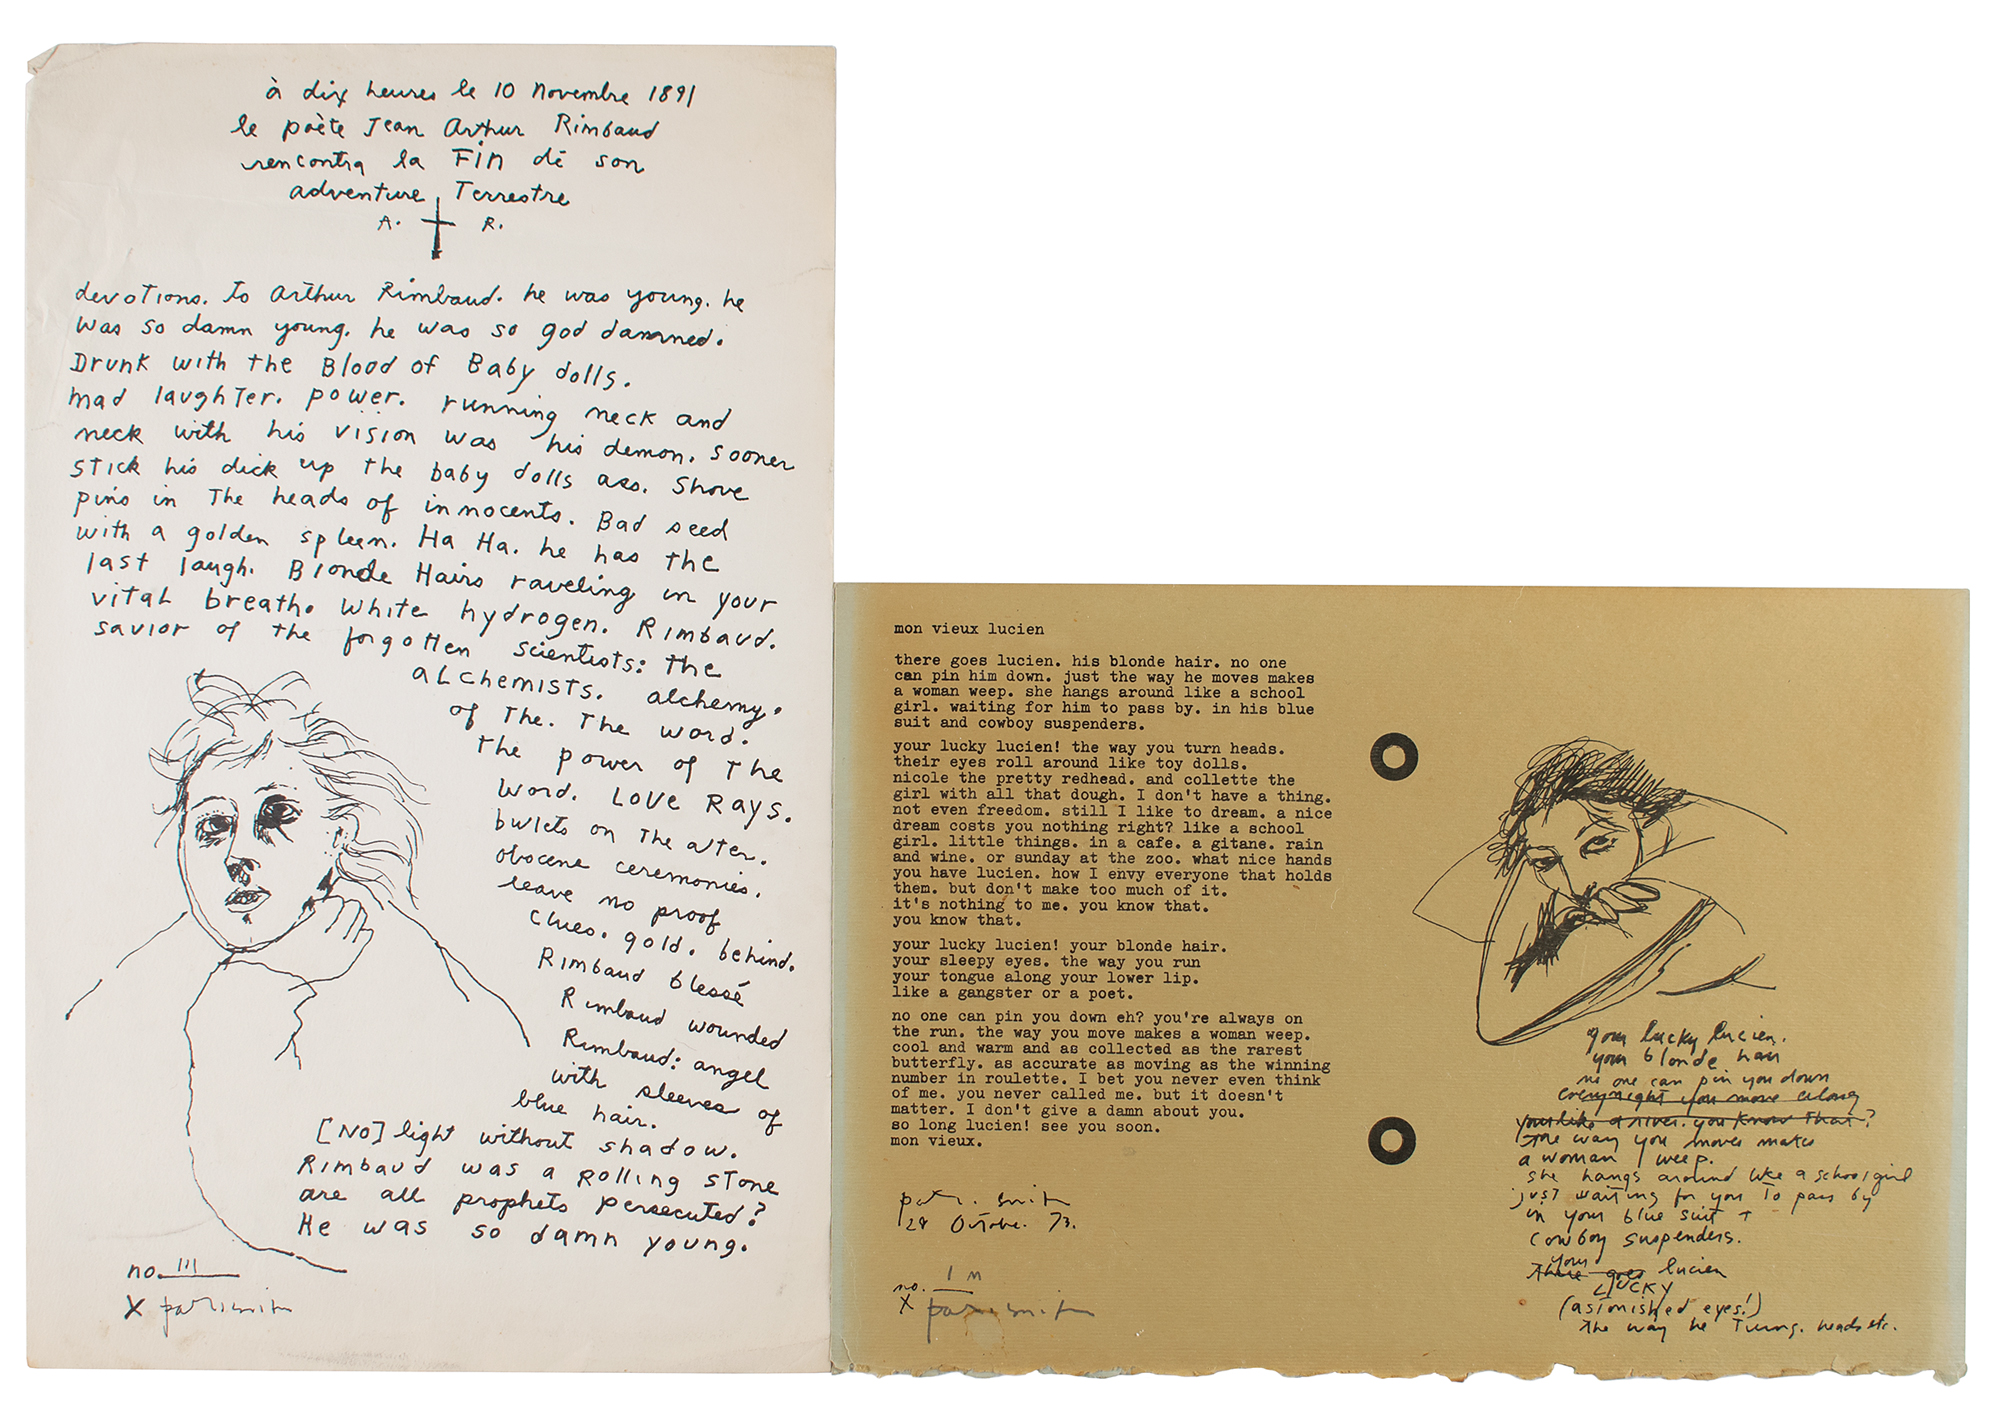 à dix heures le 10 Novembre 1891
le poète Jean Arthur Rimbaud
rencontra la Fin de son
adventure Terrestre
A. R.
devotions. to Arthur Rimbaud. he was young. he
was so damn young. he was so god damned.
Drunk with the Blood of Baby dolls.
mad laughter. power. running neck and
neck with his vision was his demon. sooner
stick his dick up the baby dolls ass. Shove
pins in the heads of innocents. Bad seed
with a golden spleen. Ha Ha. he has the
last laugh. Blonde Hairs raveling in your
vital breath. White hydrogen. Rimbaud.
savior of the forgotten scientists: the
alchemists. alchemy.
of The. The word.
the power of the
word. LOVE RAYS.
bullets on the alter.
obscene ceremonies.
leave no proof
clues. gold. behind.
Rimbaud blessé
Rimbaud wounded
Rimbaud: angel
with sleeves of
blue hair.
[NO] light without shadow.
Rimbaud was a Rolling stone
are all prophets persecuted?
He was so damn young.
no. III
X patti smith
mon vieux lucien
there goes lucien. his blonde hair. no one
can pin him down. just the way he moves makes
a woman weep. she hangs around like a school
girl. waiting for him to pass by. in his blue
suit and cowboy suspenders.
your lucky lucien! the way you turn heads.
their eyes roll around like toy dolls.
nicole the pretty redhead. and collette the
girl with all that dough. I don't have a thing.
not even freedom. still I like to dream. a nice
dream costs you nothing right? like a school
girl. little things. in a cafe. a gitane. rain
and wine. or sunday at the zoo. what nice hands
you have lucien. how I envy everyone that holds
them. but don't make too much of it.
it's nothing to me. you know that.
you know that.
your lucky lucien! your blonde hair.
your sleepy eyes. the way you run
your tongue along your lower lip.
like a gangster or a poet.
no one can pin you down eh? you're always on
the run. the way you move makes a woman weep.
cool and warm and as collected as the rarest
butterfly. as accurate as moving as the winning
number in roulette. I bet you never even think
of me. you never called me. but it doesn't
matter. I don't give a damn about you.
so long lucien! see you soon.
mon vieux.
patti smith
28 October. 73.
no.
X patti smith
your lucky lucien.
your blonde hair
no one can pin you down
everynight you move along
just like a river. you know that?
the way you moves makes
a woman weep.
she hangs around like a schoolgirl
just waiting for you to pass by
in your blue suit +
cowboy suspenders.
your
there goes lucien
LUCKY
(astonished eyes!)
the way he Turns. heads etc.